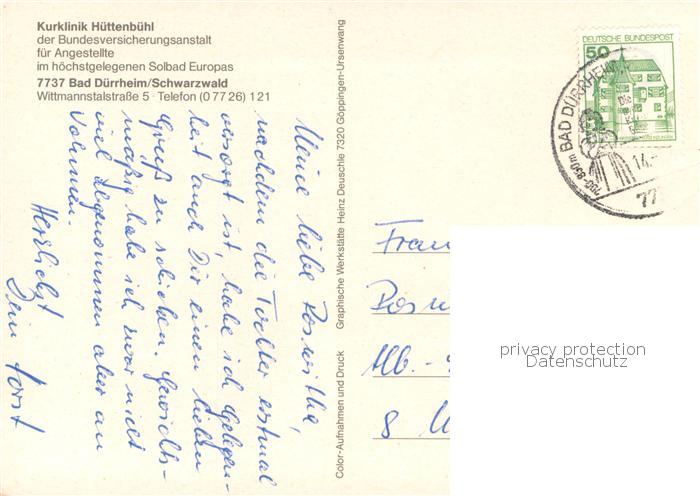 Kurklinik Hüttenbühl
der Bundesversicherungsanstalt
für Angestellte
im höchstgelegenen Solbad Europas
7737 Bad Dürrheim/Schwarzwald
Wittmannstalstraße 5 · Telefon (0 77 26) 1 21
Meine liebe Roswitha,
nachdem die Tochter erstmal
versorgt ist, habe ich Gelegen-
heit auch Dir einen lieben
Gruß zu schicken. Gewichts-
mäßig habe ich zwar nicht
viel abgenommen aber an
Volumen.
Herzlichst
Dein Horst
Color-Aufnahmen und Druck Graphische Werkstätte Heinz Deuschle 7320 Göppingen-Ursenwang
DEUTSCHE BUNDESPOST
50
BAD DÜRRHEIM
700-850m
14.
77
Frau
Rosw
Alb.-
8
privacy protection
Datenschutz